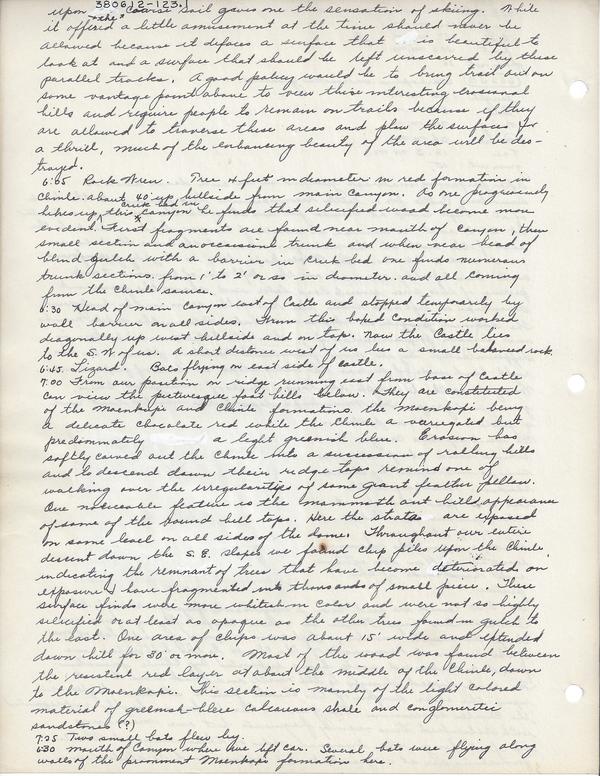 380612-123.
upon the coarse soil gives one the sensation of skiing. While
it offered a little amusement at the time should never be
allowed because it defaces a surface that is beautiful to
look at and a surface that should be left unscarred by these
parallel tracks. A good policy would be to bring trail out on
some vantage point above to view these interesting erosional
hills and require people to remain on trails because if they
are allowed to traverse these areas and plow the surfaces for
a thrill, much of the enhansing beauty of the area will be des-
troyed.
6:05 Rock Wren. Tree 4 feet in diameter in red formation in
Chinle about 40' up hillside from main Canyon. As one progressively
hikes up this creek bed in canyon he finds that silicified wood become more
evident. First fragments are found near mouth of Canyon, then
small section and an occasional trunk and when near head of
blind gulch with a barrier in creek bed one finds numerous
trunk sections from 1' to 2' or so in diameter and all coming
from the Chinle source.
6:30 Head of main Canyon east of Castle and stopped temporarily by
wall barrier on all sides. From this boxed condition worked
diagonally up west hillside and on top. Now the Castle lies
to the S.W of us. A short distance west of us lies a small balanced rock.
6:45. Lizard. Bats flying on east side of castle.
7:00 From our position on ridge running east from base of Castle
can view the picturesque foot hills below. They are constituted
of the Moenkopi and Chinle formations. the Moenkopi being
a delicate chocolate red while the Chinle a variegated but
predommately a light greenish blue. Erosion has
softly carved out the Chinle into a succession of rolling hills
and to descend down their ridge tops remind one of
walking over the irregularities of some giant feather pillow.
One noticeable feature is the mammoth ant hill appearance
of some of the round hill tops. Here the stratas are exposed
on same level on all sides of the dome. Throughout our entire
descent down the S.E. slopes we found chip piles upon the Chinle,
indicating the remnant of trees that have become deteriorated on
exposure & have fragmented into thousands of small pieces. These
surface finds were more whitish in color and were not so highly
silicified or at least as opaque as the other trees found in gulch to
the east. One area of chips was about 15' wide and extended
down hill for 30' or more. Most of the wood was found between
the resistent red layer at about the middle of the Chinle, down
to the Moenkopi. This section is mainly of the light colored
material of greenish-blue calcareous shale and conglomeritic
sandstones (?)
7:25 Two small bats flew by.
mouth of Canyon where we left car. Several bats were flying along
walls of the prominent Moenkopi formation here.